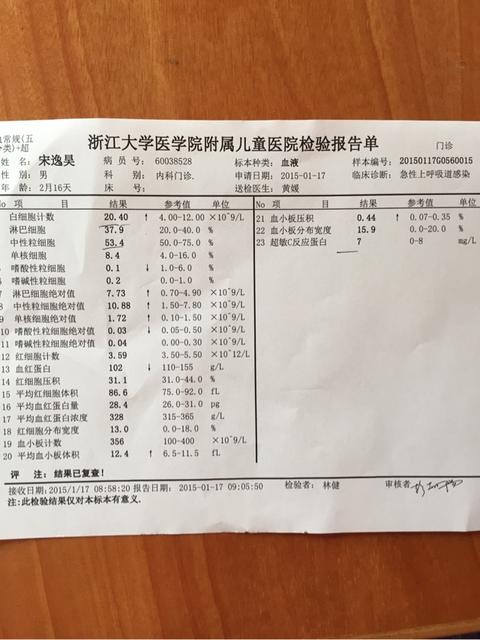 常规(五
分类)+超
浙江大学医学院附属儿童医院检验报告单
门诊
姓 名: 宋逸昊 病 员 号: 60038528 标本种类: 血液 样本编号: 20150117G0560015
性 别: 男 科 别: 内科门诊. 申请日期: 2015-01-17 临床诊断: 急性上呼吸道感染
年 龄: 2月16天 床 号: 送检医生: 黄媛
No 项 目 结果 参考值 单位
白细胞计数 20.40 ↑ 4.00-12.00 ×10^9/L
淋巴细胞 37.9 20.0-40.0 %
中性粒细胞 53.4 50.0-75.0 %
单核细胞 8.4 4.0-16.0 %
嗜酸性粒细胞 0.1 ↓ 1.0-6.0 %
嗜碱性粒细胞 0.2 0.0-1.0 %
7 淋巴细胞绝对值 7.73 ↑ 0.70-4.90 ×10^9/L
8 中性粒细胞绝对值 10.88 ↑ 1.50-7.80 ×10^9/L
9 单核细胞绝对值 1.72 ↑ 0.10-1.50 ×10^9/L
10 嗜酸性粒细胞绝对值 0.03 ↓ 0.05-0.50 ×10^9/L
11 嗜碱性粒细胞绝对值 0.04 0.00-0.30 ×10^9/L
12 红细胞计数 3.59 3.50-5.50 ×10^12/L
13 血红蛋白 102 ↓ 110-155 g/L
14 红细胞压积 31.1 31.0-44.0 %
15 平均红细胞体积 86.6 75.0-92.0 fL
16 平均血红蛋白量 28.4 26.0-31.0 pg
17 平均血红蛋白浓度 328 315-365 g/L
18 红细胞分布宽度 13.0 0.0-18.0 %
19 血小板计数 356 100-400 ×10^9/L
20 平均血小板体积 12.4 ↑ 6.5-11.5 fL
No 项 目 结果 参考值 单位
21 血小板压积 0.44 ↑ 0.07-0.35 %
22 血小板分布宽度 15.9 0.0-20.0 %
23 超敏C反应蛋白 7 0-8 mg/L
评 注: 结果已复查!
接收日期:2015/1/17 08:58:20 报告日期: 2015-01-17 09:05:50 检验者: 林健 审核者
注:此检验结果仅对本标本有意义.